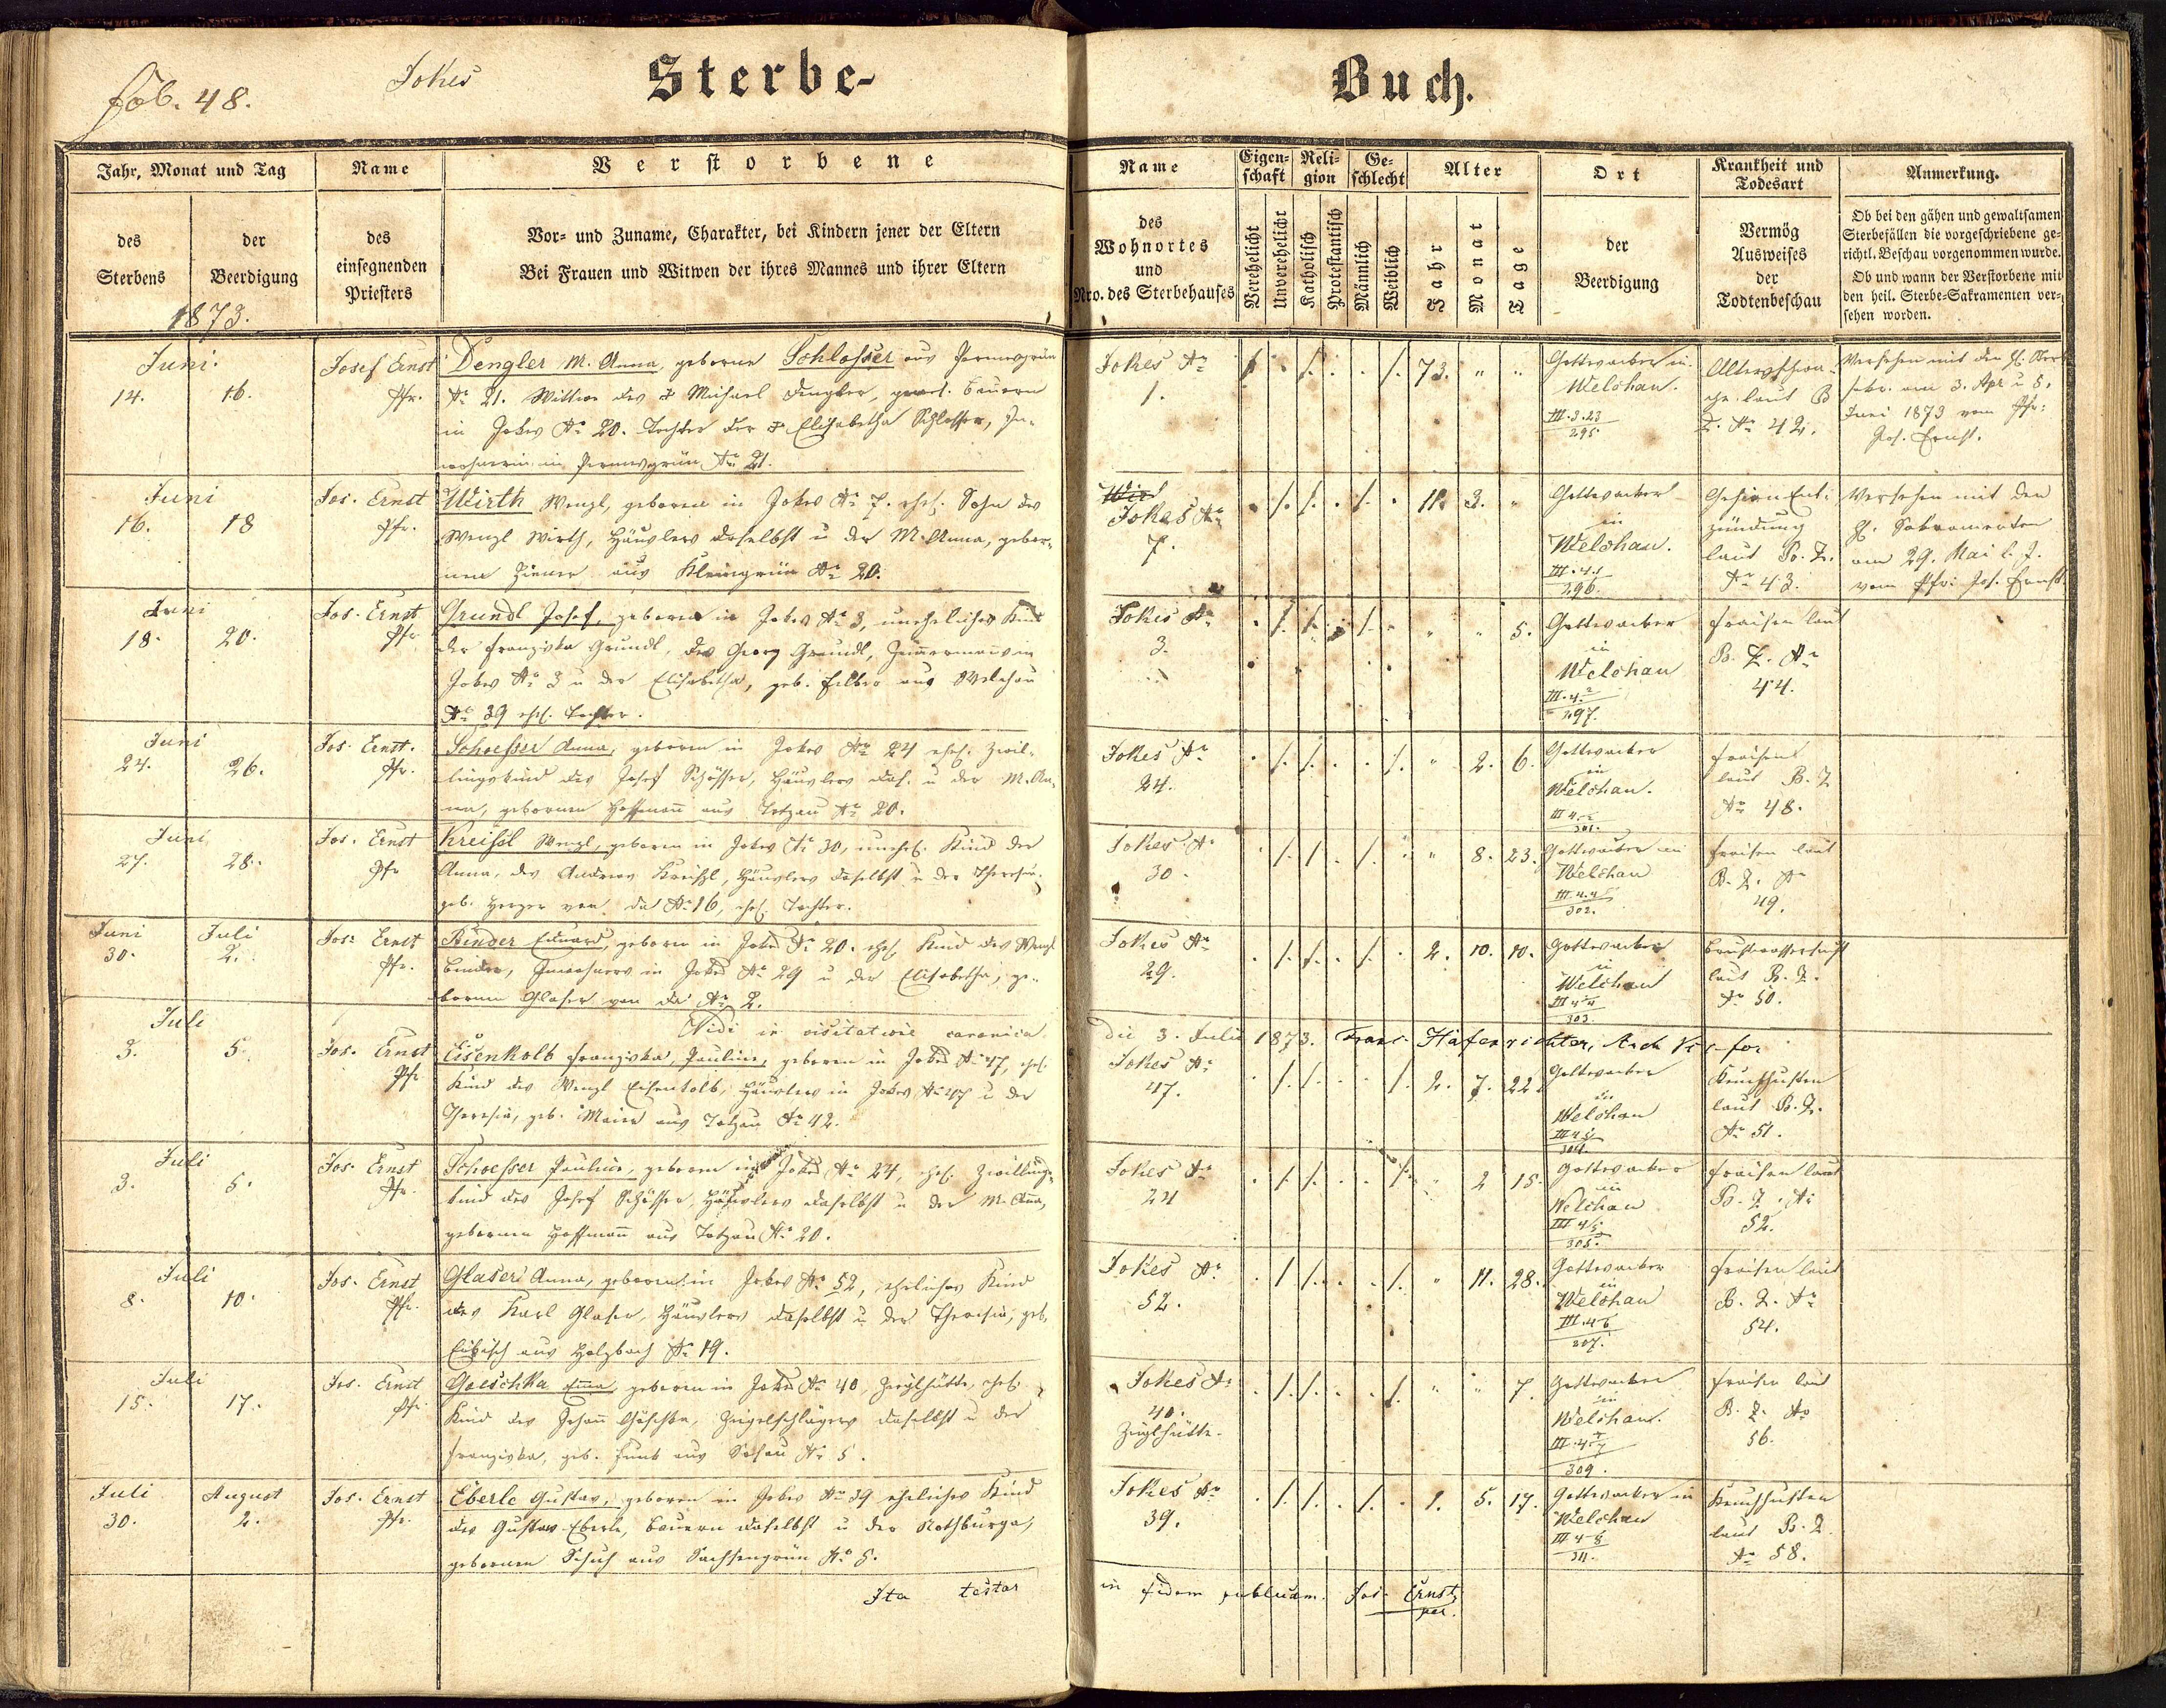 fol. 48.
Jokes
Sterbe-
Buch.
Jahr, Monat und Tag
des Sterbens
der Beerdigung
1873.
Name
des einsegnenden Priesters
Verstorbene
Vor- und Zuname, Charakter, bei Kindern jener der Eltern
Bei Frauen und Witwen der ihres Mannes und ihrer Eltern
Name
des
Wohnortes
und
Nro. des Sterbehauses
Eigen-
schaft
Verehelicht
Unverehelicht
Reli-
gion
Katholisch
Protestantisch
Ge-
schlecht
Männlich
Weiblich
Alter
Jahr
Monat
Tage
Ort
der
Beerdigung
Krankheit und
Todesart
Vermög
Ausweises
der
Todtenbeschau
Anmerkung.
Ob bei den gähen und gewaltsamen
Sterbefällen die vorgeschriebene ge-
richtl. Beschau vorgenommen wurde.
Ob und wann der Verstorbene mit
den heil. Sterbe-Sakramenten ver-
sehen worden.
Juni.
14. 16.
Josef Ernst
Pfr.
Dengler M. Anna, geborne Schlosser aus Permesgrün
No 21. Wittwe des † Michael Dengler, gewes. Bauern
in Jokes No 20. Tochter der † Elisabetha Schlosser, In-
wohnerin in Permesgrün No 21.
Jokes No
1.
73. " "
Gottesacker in
Welchau.
III.3.23
295.
Altersschwä-
che laut B
Z. No 42.
Versehen mit den hl. Sterb
3. Apr u 5.
Juni 1873 vom Pfr:
Jos. Ernst.
Juni
16. 18
Jos. Ernst
Pfr.
Wirth Wenzl, geboren in Jokes No 7. ehel. Sohn des
Wenzl Wirth, Häuslers daselbst u der M. Anna, gebor-
nen aus Kleingrün No 20.
Jokes No
7.
11. 3. "
Gottesacker
in
Welchau.
III.4.1
296.
Gehirn Ent-
zündung
laut B. Z.
No 43.
Versehen mit den
hl. Sakramenten
am 29. Mai l. J.
vom Pfr: Jos. Ernst
Juni
18. 20.
Jos. Ernst
Pfr.
Grundl Josef, geboren in Jokes No 3, uneheliches Kind
der Franziska Grundl, des Georg Grundl, Zimmermann in
Jokes No 3 u der Elisabetha, geb. aus Welchau
No 39 ehel. Tochter.
Jokes No
3.
" " 5.
Gottesacker
in
Welchau
III.4.2
297.
Fraisen laut
B. Z. No
44.
Juni
24. 26.
Jos. Ernst.
Pfr.
Schoesser Anna, geboren in Jokes No 24 ehel. Zwil-
lingskind des Josef Schösser, Häuslers das. u der M. An-
na, gebornen Hoffmann aus Totzau No 20.
Jokes No
24.
" 2. 6.
Gottesacker
in
Welchau.
301.
Fraisen
laut B. Z
No 48.
Juni
27. 28.
Jos. Ernst
Pfr
Kreissl Wenzl, geboren in Jokes No 30, unehel. Kind der
Anna, des Andreas Kreissl, Häuslers daselbst u der Theresia,
geb. von da No 16, ehel. Tochter.
Jokes No
30
" 8. 23.
Gottesacker in
Welchau
302.
Fraisen laut
B. Z. No
49.
Juni Juli
30. 2.
Jos: Ernst
Pfr.
Binder Eduard, geboren in Jokes No 20. ehel. Kind des Wenzl
Binder, Inwohners in Jokes No 29 u der Elisabetha, ge-
bornen Glaser von da No 2.
Jokes No
29.
2. 10. 10.
Gottesacker
in
Welchau
III 4 4
303.
Brustwassersucht
laut B. Z.
No 50.
Vidi in visitatione canonica die 3. Julii 1873. Franz Hafenrichter,
Juli
3. 5.
Jos. Ernst
Pfr
Eisenkolb Franziska, Pauline, geboren in Jokes No 47, ehel.
Kind des Wenzl Eisenkolb, Häuslers in Jokes No 47 u der
Theresia, geb. Maier aus Totzau No 42.
Jokes No
47.
2. 7. 22.
Gottesacker
in
Welchau
304.
Keuchhusten
laut B. Z.
No 51.
Juli
3. 5.
Jos. Ernst
Pfr.
Schoesser Pauline, geboren in Jokes No 24, ehel. Zwillings-
kind des Josef Schösser, Häuslers daselbst u der M. Anna,
gebornen Hoffmann aus Totzau No 20.
Jokes No
24
" 2 15.
Gottesacker
in
Welchau
III 4/5
305.
Fraisen laut
B. Z. No
52.
Juli
8. 10.
Jos. Ernst
Pfr.
Glaser Anna, geboren in Jokes No 52, eheliches Kind
des Karl Glaser, Häuslers daselbst u der Theresia, geb.
aus Holzbach No 19.
Jokes No
52.
" 11. 28.
Gottesacker
in
Welchau
III.4 6
307.
Fraisen laut
B. Z. No
54.
Juli
15. 17.
Jos. Ernst
Pfr
Goeschka Emma, geboren in Jokes No 40, Zieglhütte, ehel.
Kind des Johann Göschka, Ziegelschlägers daselbst u der
Franziska, geb. Funk aus No 5.
Jokes No
40.
Zieglhütte.
" " 7.
Gottesacker
in
Welchau.
III.4.7
309.
Fraisen laut
B. Z. No
56.
Juli August
30. 2.
Jos. Ernst
Pfr.
Eberle Gustav, geboren in Jokes No 39 eheliches Kind
des Gustav Eberle, Bauern daselbst u der Nothburga,
gebornen Schuh aus Sachsengrün No 5.
Jokes No
39.
1. 5. 17.
Gottesacker in
Welchau
III 4 8
311.
Keuchhusten
laut B. Z.
No 58.
Ita testor in fidem publicam. Jos. Ernst
par.